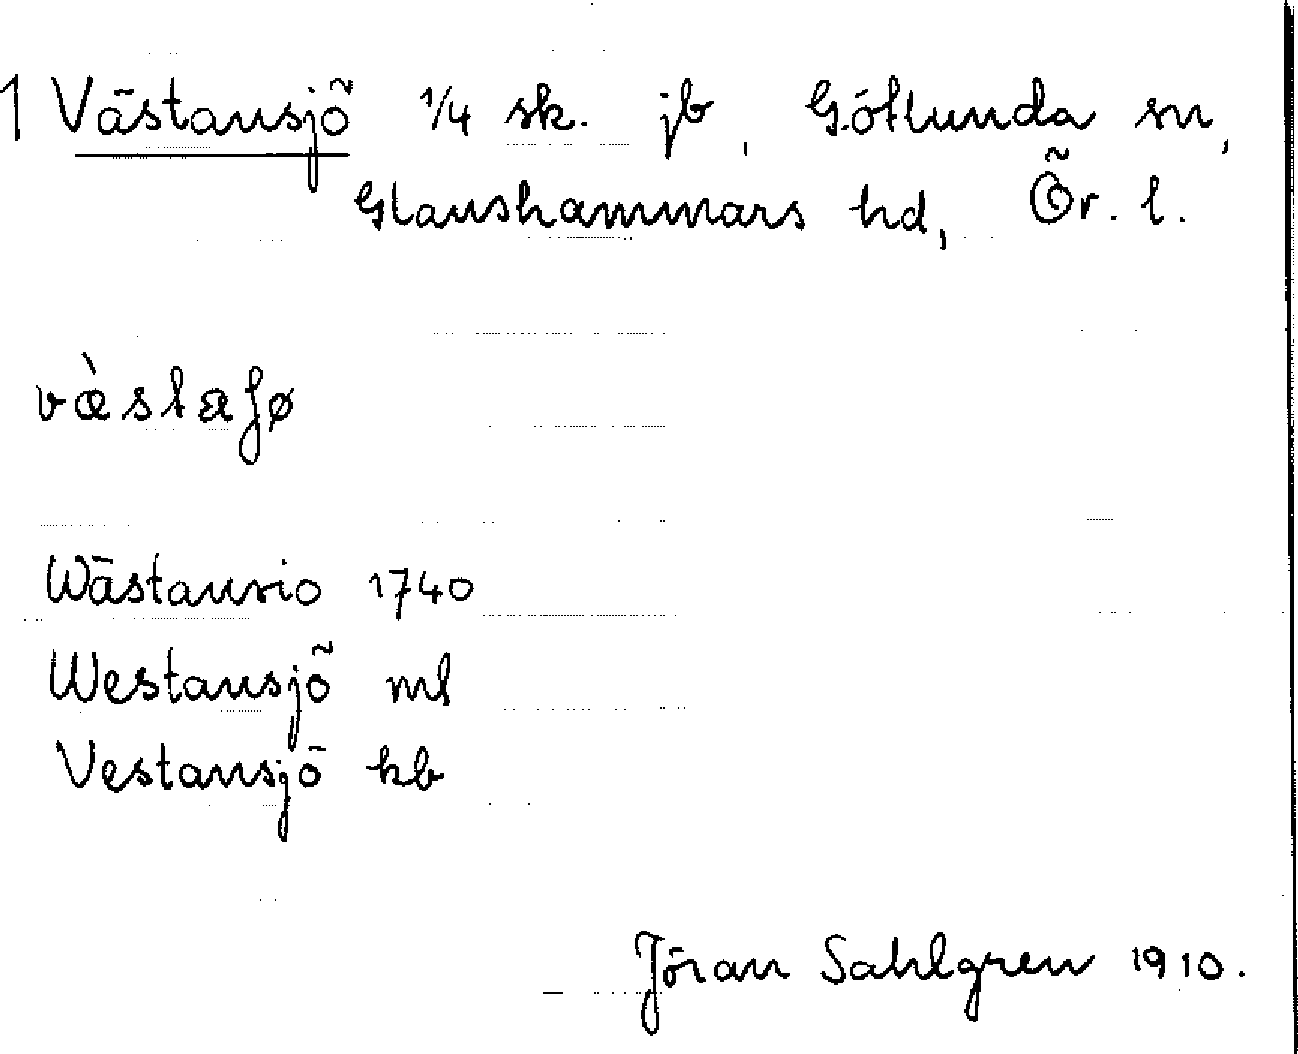 1 Västansjö 1/4 sk. jb, Götlunda sn,
Glanshammars hd, Ör. l.
và̀staʃø
Wästansio 1740
Westansjö ml
Vestansjö kb
Jöran Sahlgren 1910.